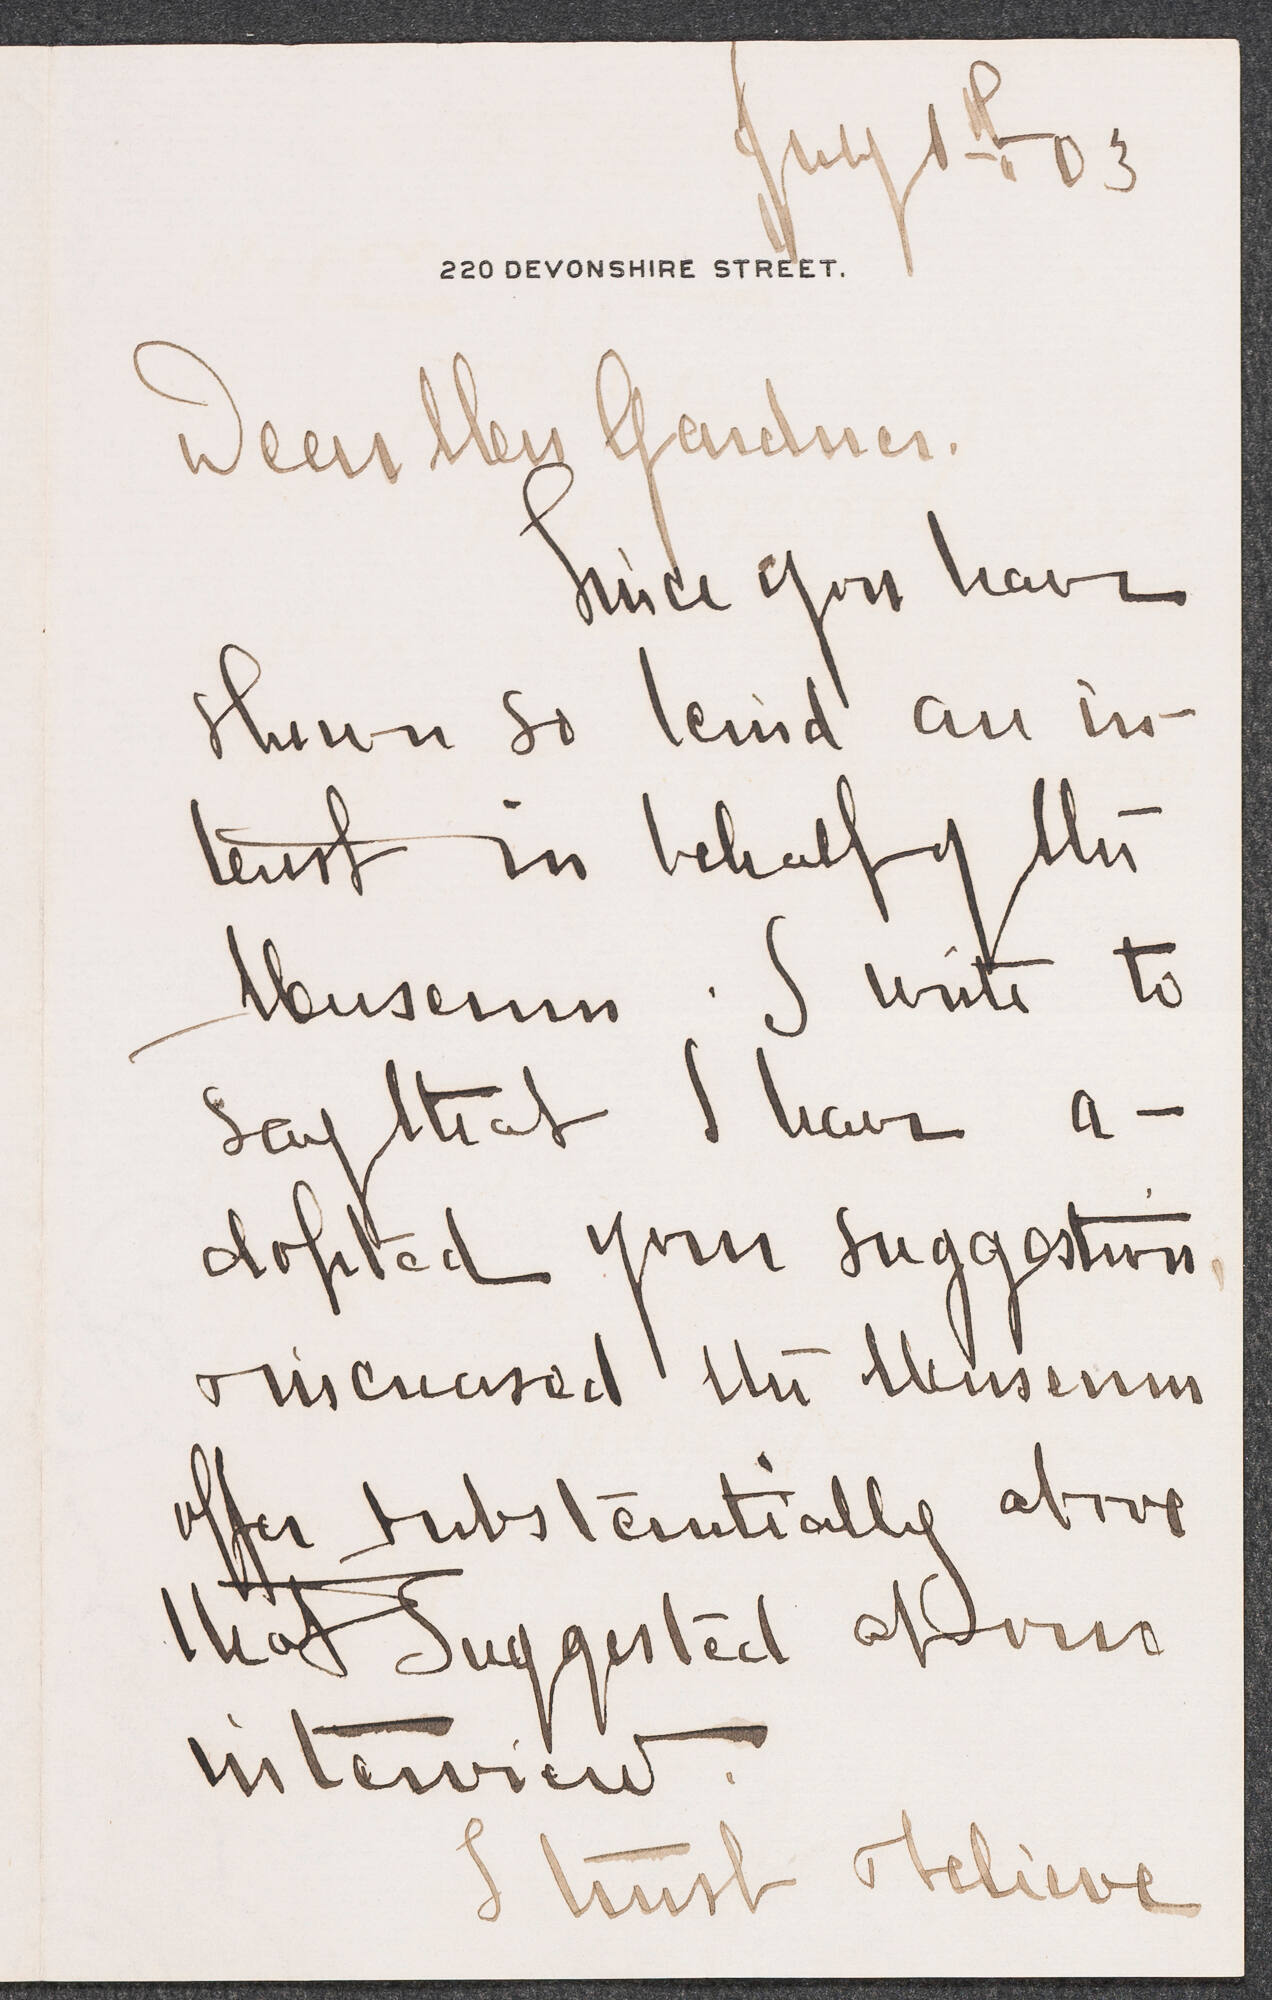 July 1st 03
220 DEVONSHIRE STREET.
Dear Mrs Gardner.
Since you have
shown so kind an in-
terest in behalf of the
Museum. I write to
say that I have a-
dopted your suggestion,
& increased the Museum
offer substantially above
that suggested at our
interview.
I trust & believe